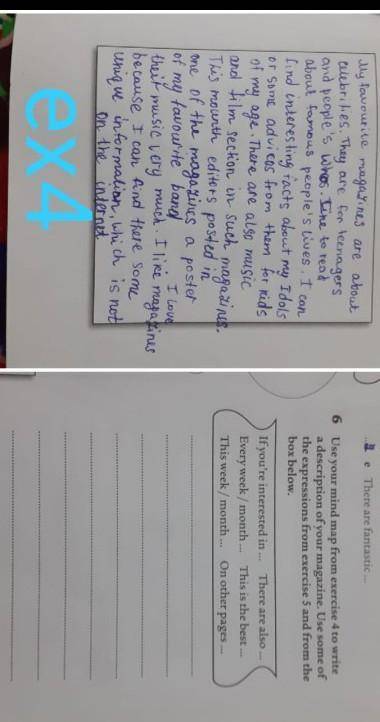 My favourite magazines are about
celebrities. They are for teenagers
and people's Whos. Like to read
about famous people's lives. I can
find interesting facts about my Idols
or some advices from them for kids
of my age. There are also music
and film section in such magazines.
This mounth editors posted in
one of the magazines a poster
of my favourite band. I love
their music very much. I like magazines
because I can find there some
unique information, which is not
on the internet.
ex4
e There are fantastic ...
6 Use your mind map from exercise 4 to write
a description of your magazine. Use some of
the expressions from exercise 5 and from the
box below.
If you're interested in ... There are also ...
Every week / month ... This is the best ...
This week / month ... On other pages ...